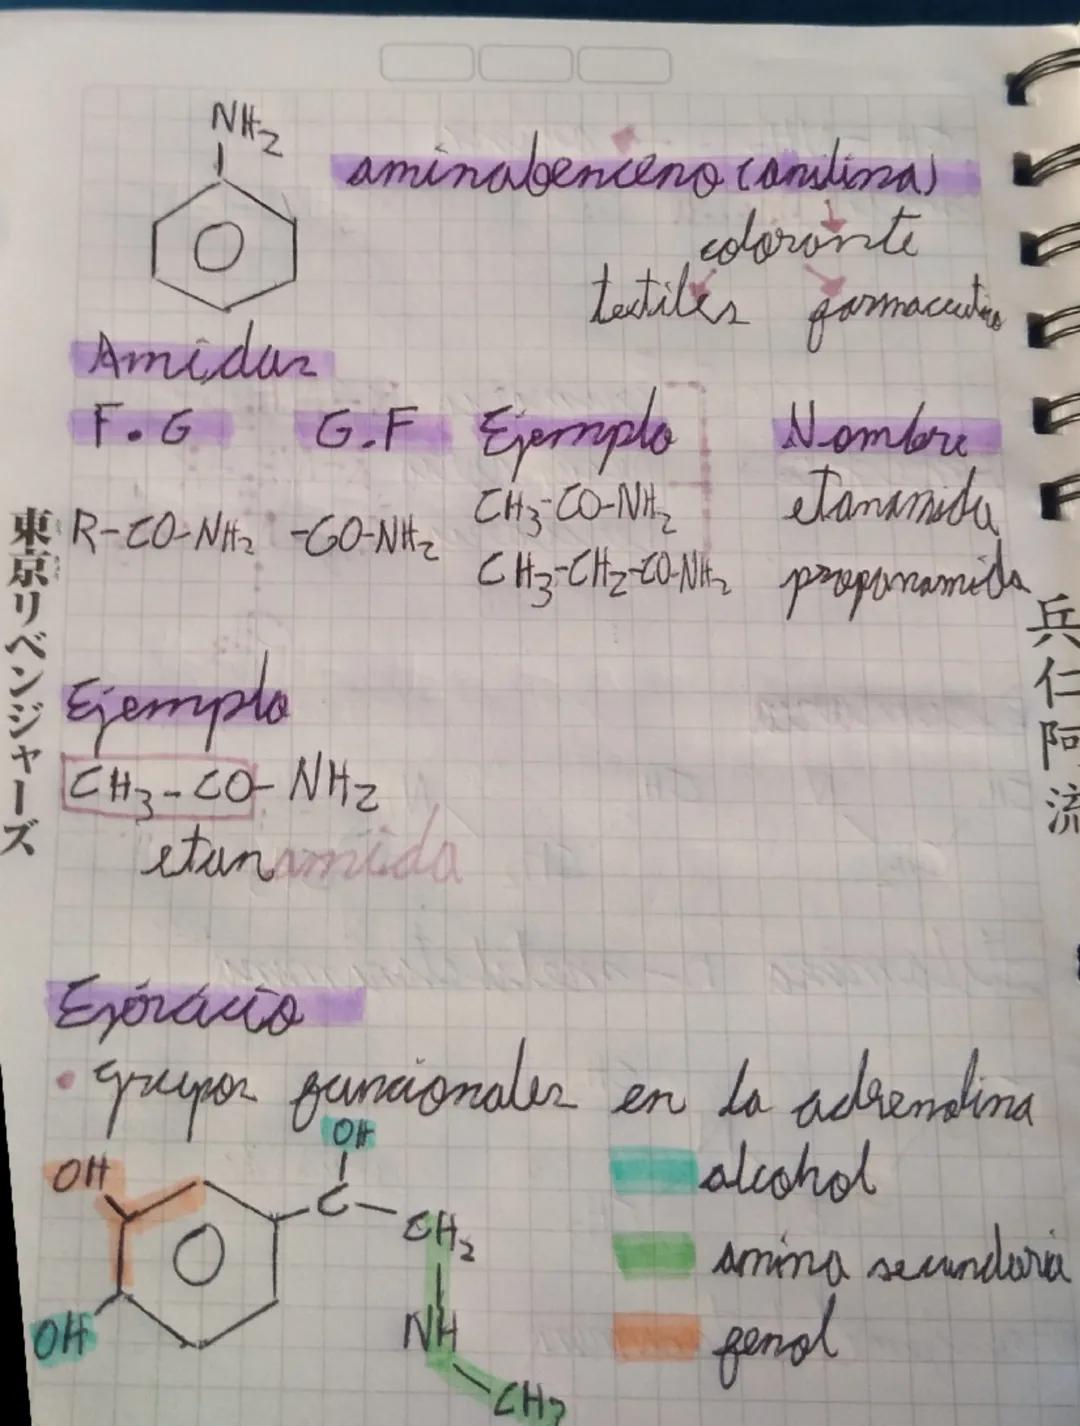 NH2
aminabenceno (anilina)
colorante
textiles farmaceutico
Amidas
F.G G.F Ejemplo Nombre
R-CO-NH2 -CO-NH2 CH3-CO-NH2 etanamida
CH3-CH2-CO-NH2 propanamida
東京リベンジャーズ
兵仁阿流
Ejemplo
CH3-CO-NH2
etanamida
Ejercicio
• grupos funcionales en la adrenalina
OH
OH
C-CH2
OH
NH
CH3
alcohol
amina secundaria
fenol